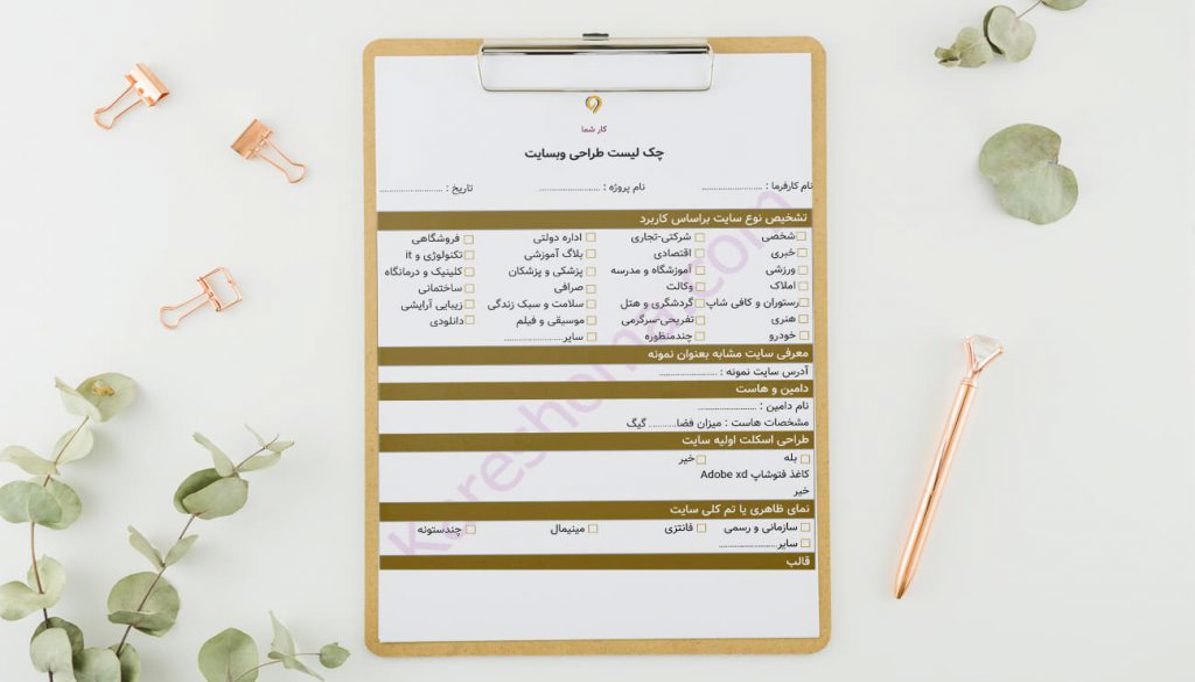 کار شما
چک لیست طراحی وبسایت
نام کارفرما : ........................ نام پروژه : ........................ تاریخ : ........................
تشخیص نوع سایت براساس کاربرد
شخصی شرکتی-تجاری اداره دولتی فروشگاهی
خبری اقتصادی بلاگ آموزشی تکنولوژی و it
ورزشی آموزشگاه و مدرسه پزشکی و پزشکان کلینیک و درمانگاه
املاک وکالت صرافی ساختمانی
رستوران و کافی شاپ گردشگری و هتل سلامت و سبک زندگی زیبایی آرایشی
هنری تفریحی-سرگرمی موسیقی و فیلم دانلودی
خودرو چندمنظوره سایر........................
معرفی سایت مشابه بعنوان نمونه
آدرس سایت نمونه : ........................
دامین و هاست
نام دامین : ........................
مشخصات هاست : میزان فضا............ گیگ
طراحی اسکلت اولیه سایت
بله خیر
کاغذ فتوشاپ Adobe xd
خیر
نمای ظاهری یا تم کلی سایت
سازمانی و رسمی فانتزی مینیمال چندستونه
سایر........................
قالب
Kareshoma.com